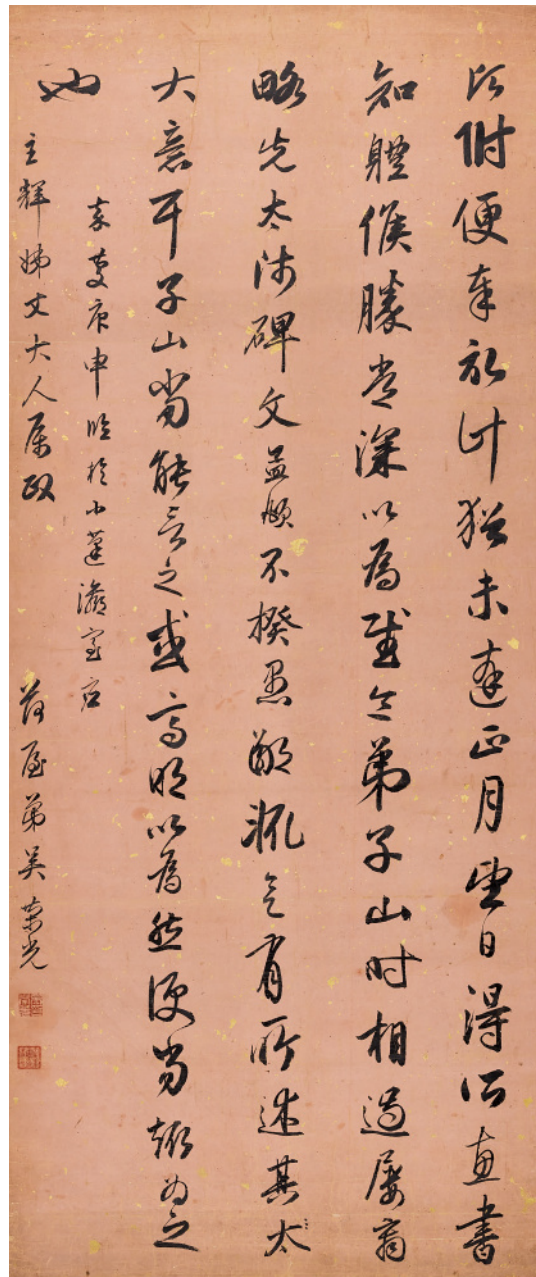 附便奉計猶未達正月望日得所惠書
知體候勝常深以為慰令弟子山時相過屢商
略先太師碑文益顧不揆愚鄙輒有所述其太
大意耳子山當能言之或高明以為然便當為之
也
嘉慶庚申臨於小蓬瀛室
圭輝姊丈大人屬政 荷屋弟吳榮光